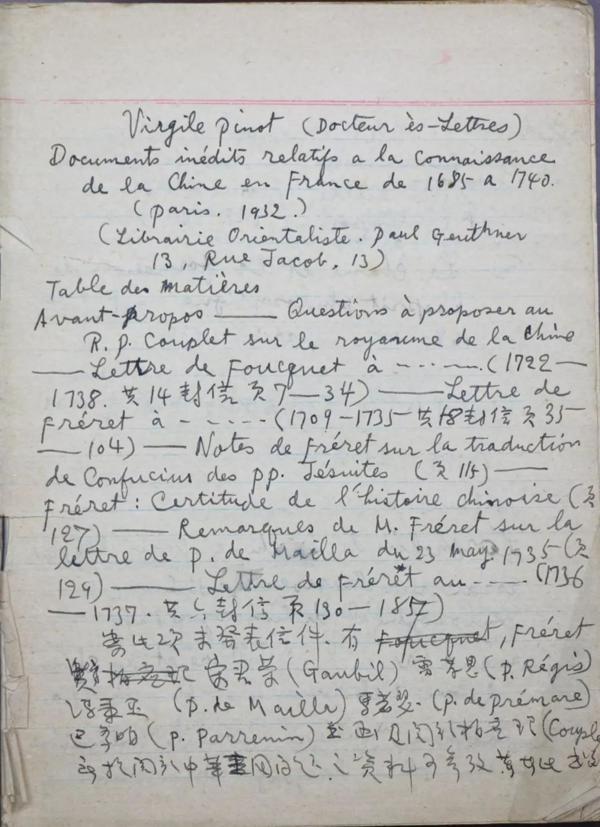 Virgile Pinot (Docteur ès-Lettres)
Documents inédits relatifs a la connaissance
de la Chine en France de 1685 a 1740.
(Paris. 1932.)
(Librairie Orientaliste. Paul Geuthner
13, Rue Jacob, 13)
Table des matières
Avant-propos —— Questions à proposer au
R. P. Couplet sur le royaume de la Chine
—— Lettre de Foucquet à ----- (1722—
1738. 共14封信 页7—34) —— Lettre de
Fréret à ----- (1709-1735 共18封信 页35
—104) —— Notes de Fréret sur la traduction
de Confucius des PP. Jésuites (页115) ——
Fréret: Certitude de l'histoire chinoise (页
127) —— Remarques de M. Fréret sur la
lettre de P. de Mailla du 23 may 1735 (页
129) —— Lettre de Fréret au ---- (1736
—1737. 共六封信 页130—157)
未發表信件. 有 Foucquet, Fréret
宋君荣 (Gaubil) 雷孝思 (P. Régis)
冯秉正 (P. de Mailla) (P. de prémare)
巴多明 (P. Parrenin) 及関於柏应理 (Couple
関於中 之資料可参攷